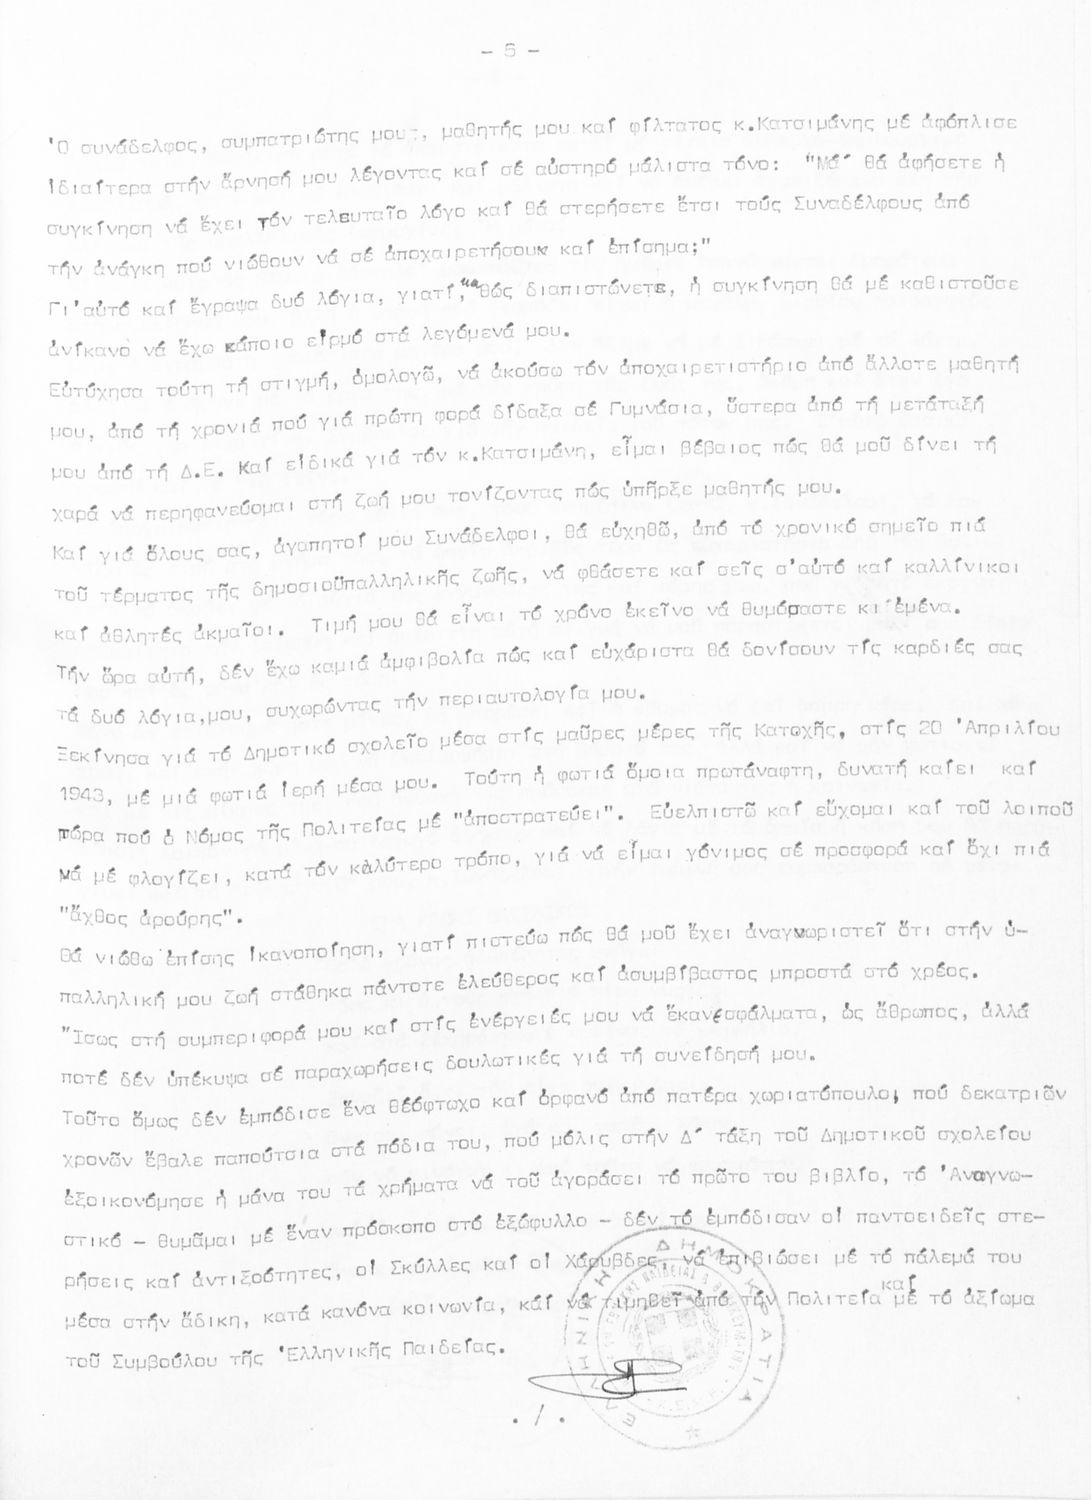 - 6 -
Ὁ συνάδελφος, συμπατριώτης μου, μαθητής μου καί φίλτατος κ.Κατσιμάνης μέ ἀφόπλισε
ἰδιαίτερα στήν ἄρνησή μου λέγοντας καί σέ αὐστηρό μάλιστα τόνο: "Μά θά ἀφήσετε ἡ
συγκίνηση νά ἔχει τόν τελευταῖο λόγο καί θά στερήσετε ἔτσι τούς Συναδέλφους ἀπό
τήν ἀνάγκη πού νιώθουν νά σέ ἀποχαιρετήσουν καί ἐπίσημα;"
Γι'αὐτό καί ἔγραψα δυό λόγια, γιατί, καθώς διαπιστώνετε, ἡ συγκίνηση θά μέ καθιστοῦσε
ἀνίκανο νά ἔχω κάποιο εἱρμό στά λεγόμενά μου.
Εὐτύχησα τούτη τή στιγμή, ὁμολογῶ, νά ἀκούσω τόν ἀποχαιρετιστήριο ἀπό ἄλλοτε μαθητή
μου, ἀπό τή χρονιά πού γιά πρώτη φορά δίδαξα σέ Γυμνάσια, ὕστερα ἀπό τή μετάταξή
μου ἀπό τή Δ.Ε. Καί εἰδικά γιά τόν κ.Κατσιμάνη, εἶμαι βέβαιος πώς θά μοῦ δίνει τή
χαρά νά περηφανεύομαι στή ζωή μου τονίζοντας πώς ὑπῆρξε μαθητής μου.
Καί γιά ὅλους σας, ἀγαπητοί μου Συνάδελφοι, θά εὐχηθῶ, ἀπό τό χρονικό σημεῖο πιά
τοῦ τέρματος τῆς δημοσιοϋπαλληλικῆς ζωῆς, νά φθάσετε καί σεῖς σ'αὐτό καί καλλίνικοι
καί ἀθλητές ἀκμαῖοι. Τιμή μου θά εἶναι τό χρόνο ἐκεῖνο νά θυμόσαστε κι ἐμένα.
Τήν ὥρα αὐτή, δέν ἔχω καμιά ἀμφιβολία πώς καί εὐχάριστα θά δονίσουν τίς καρδιές σας
τά δυό λόγια,μου, συχωρώντας τήν περιαυτολογία μου.
Ξεκίνησα γιά τό Δημοτικό σχολεῖο μέσα στίς μαῦρες μέρες τῆς Κατοχῆς, στίς 20 Ἀπριλίου
1943, μέ μιά φωτιά ἱερή μέσα μου. Τούτη ἡ φωτιά ὅμοια πρωτάναφτη, δυνατή καίει καί
τώρα πού ὁ Νόμος τῆς Πολιτείας μέ "ἀποστρατεύει". Εὐελπιστῶ καί εὔχομαι καί τοῦ λοιποῦ
νά μέ φλογίζει, κατά τόν καλύτερο τρόπο, γιά νά εἶμαι γόνιμος σέ προσφορά καί ὄχι πιά
"ἄχθος ἀρούρης".
Θά νιώθω ἐπίσης ἱκανοποίηση, γιατί πιστεύω πώς θά μοῦ ἔχει ἀναγνωριστεῖ ὅτι στήν ὑ-
παλληλική μου ζωή στάθηκα πάντοτε ἐλεύθερος καί ἀσυμβίβαστος μπροστά στό χρέος.
Ἴσως στή συμπεριφορά μου καί στίς ἐνέργειές μου νά ἔκανεσφάλματα, ὡς ἄθρωπος, ἀλλά
ποτέ δέν ὑπέκυψα σέ παραχωρήσεις δουλωτικές γιά τή συνείδησή μου.
Τοῦτο ὅμως δέν ἐμπόδισε ἕνα θεόφτωχο καί ὀρφανό ἀπό πατέρα χωριατόπουλο, πού δεκατριῶν
χρονῶν ἔβαλε παπούτσια στά πόδια του, πού μόλις στήν Δ´ τάξη τοῦ Δημοτικοῦ σχολείου
ἐξοικονόμησε ἡ μάνα του τά χρήματα νά τοῦ ἀγοράσει τό πρῶτο του βιβλίο, τό Ἀναγνω-
στικό - θυμᾶμαι μέ ἕναν πρόσκοπο στό ἐξώφυλλο - δέν τό ἐμπόδισαν οἱ παντοειδεῖς στε-
ρήσεις καί ἀντιξοότητες, οἱ Σκύλλες καί οἱ Χάρυβδες, νά ἐπιβιώσει μέ τό πάλεμά του
μέσα στήν ἄδικη, κατά κανόνα κοινωνία, καί νά τιμηθεῖ ἀπό τήν Πολιτεία καί μέ τό ἀξίωμα
τοῦ Συμβούλου τῆς Ἑλληνικῆς Παιδείας.
./.
ΕΛΛΗΝΙΚΗ ΔΗΜΟΚΡΑΤΙΑ